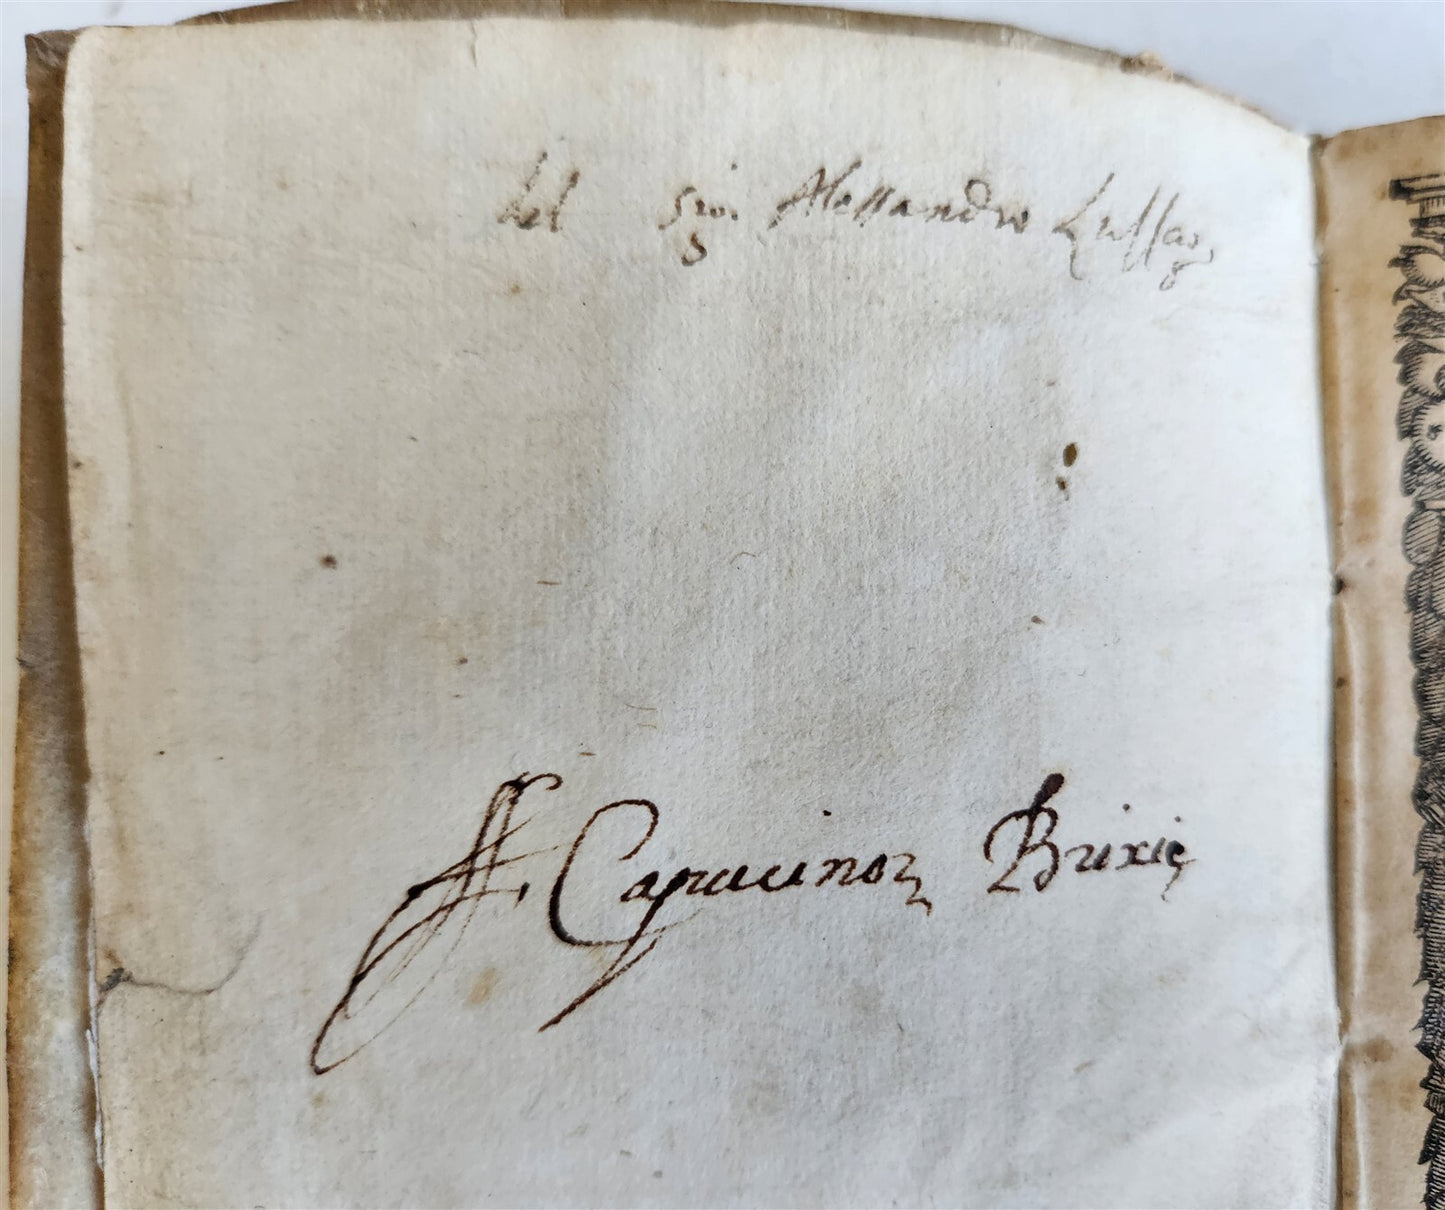 del sig.r Alessandro Lussag
ff. Capucinoꝝ Brixię